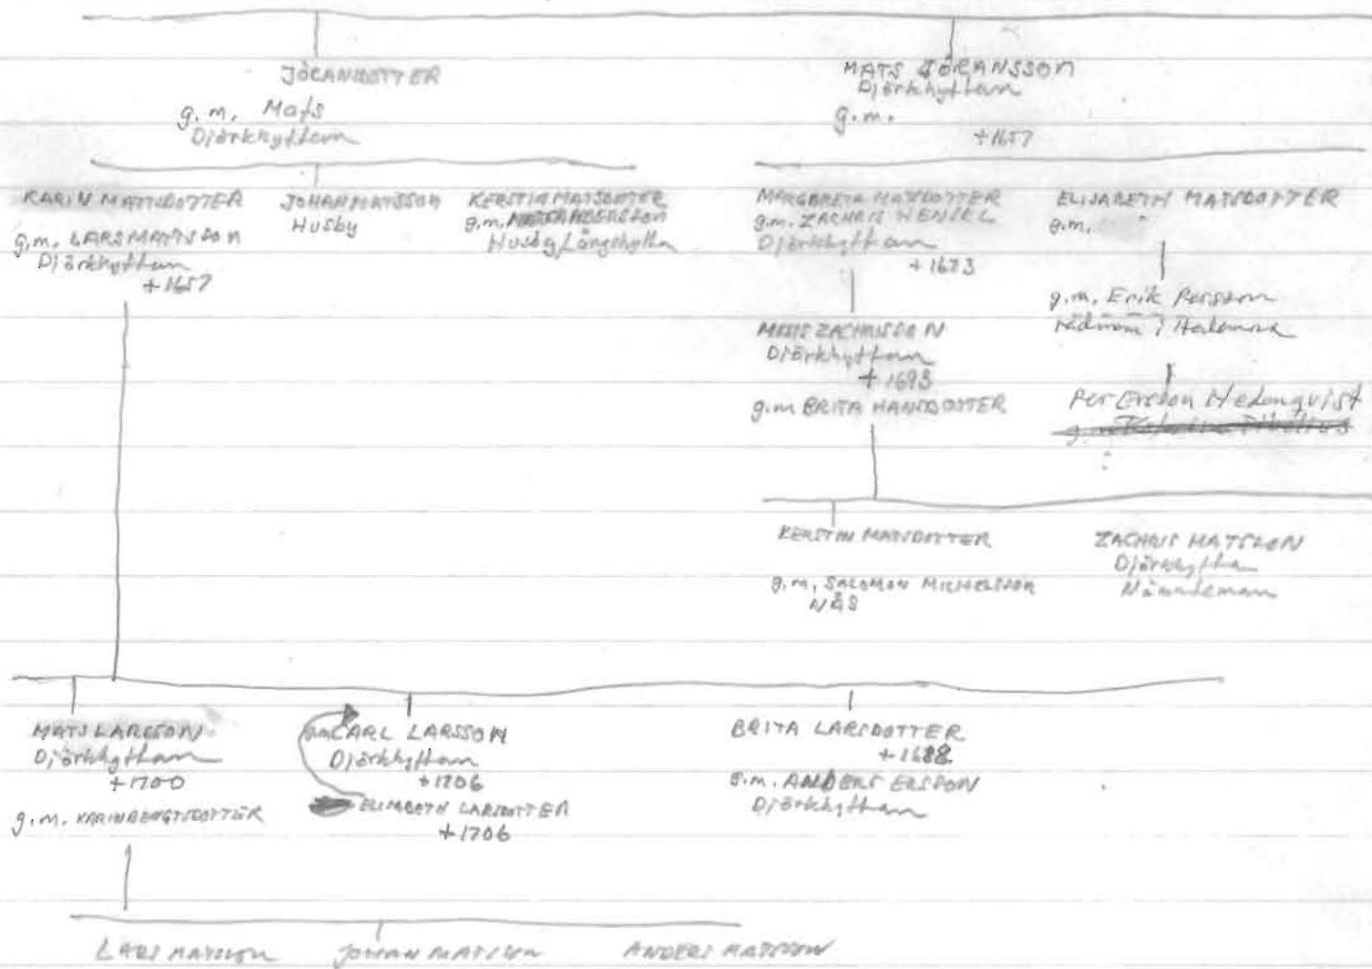 JÖRANSDOTTER
g.m. Mats
Djörkhyttan
MATS JÖRANSSON
Djörkhyttan
g.m.
+1657
KARIN MATTSDOTTER
g.m. LARS MATTSSON
Djörkhyttan
+1657
JOHAN MATSSON
Husby
KERSTIN MATSDOTTER
g.m. ANDERSSON
Husby, Långshyttan
MARGARETA MATSDOTTER
g.m. ZACHRIS HENSEL
Djörkhyttan
+1673
ELISABETH MATSDOTTER
g.m.
g.m. Erik Persson
rådman i Hedemora
MATS ZACHRISSON
Djörkhyttan
+1693
g.m BRITA HANSDOTTER
Per Ersson Hedenquist
g.m
KERSTIN MATSDOTTER
g.m, SALOMON MICHELSSON
NÅS
ZACHRIS MATSSON
Djörkhyttan
Nämndeman
MATS LARSSON
Djörkhyttan
+1700
g.m. KARIN BENGTSDOTTER
CARL LARSSON
Djörkhyttan
+1706
ELISABETH LARSDOTTER
+1706
BRITA LARSDOTTER
+1688
g.m. ANDERS ERSSON
Djörkhyttan
LARS MATSSON
JOHAN MATSSON
ANDERS MATSSON